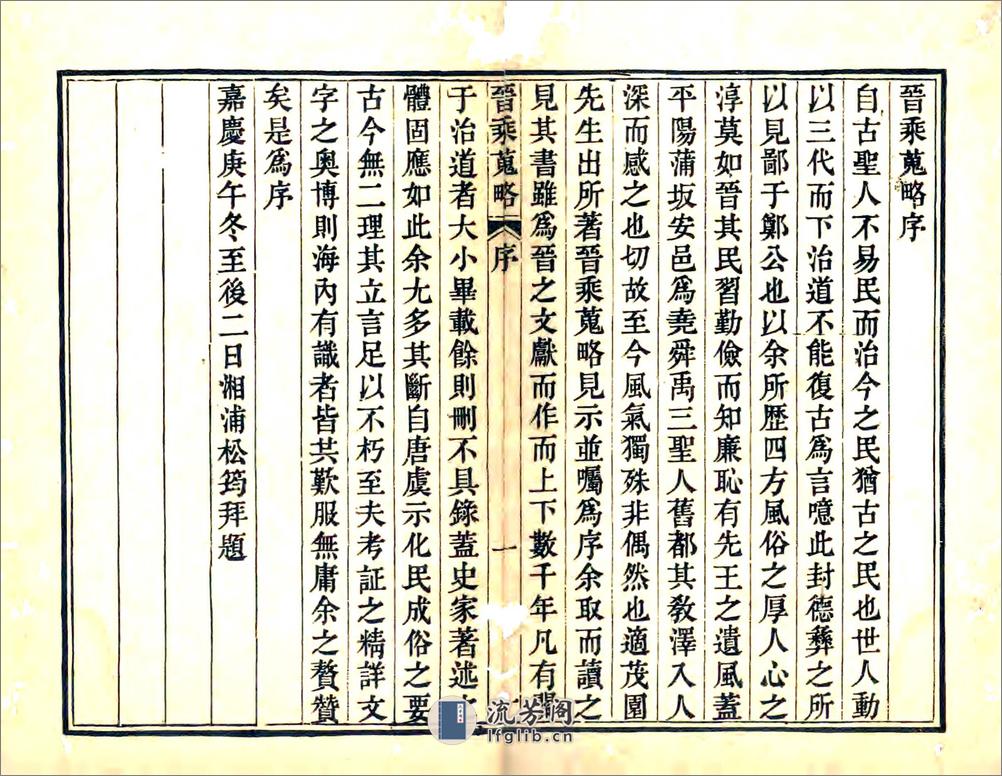 晉乘蒐略序
自古聖人不易民而治今之民猶古之民也世人動
以三代而下治道不能復古爲言噫此封德彝之所
以見鄙于鄭公也以余所歷四方風俗之厚人心之
淳莫如晉其民習勤儉而知廉恥有先王之遺風蓋
平陽蒲坂安邑爲堯舜禹三聖人舊都其敎澤入人
深而感之也切故至今風氣獨殊非偶然也適茂園
先生出所著晉乘蒐略見示並囑爲序余取而讀之
見其書雖爲晉之文獻而作而上下數千年凡有關
晉乘蒐略 序 一
于治道者大小畢載餘則刪不具錄蓋史家著述之
體固應如此余尢多其斷自唐虞示化民成俗之要
古今無二理其立言足以不朽至夫考証之精詳文
字之奧博則海內有識者皆共歎服無庸余之贅贊
矣是爲序
嘉慶庚午冬至後二日湘浦松筠拜題
流芳阁
lfglib.cn